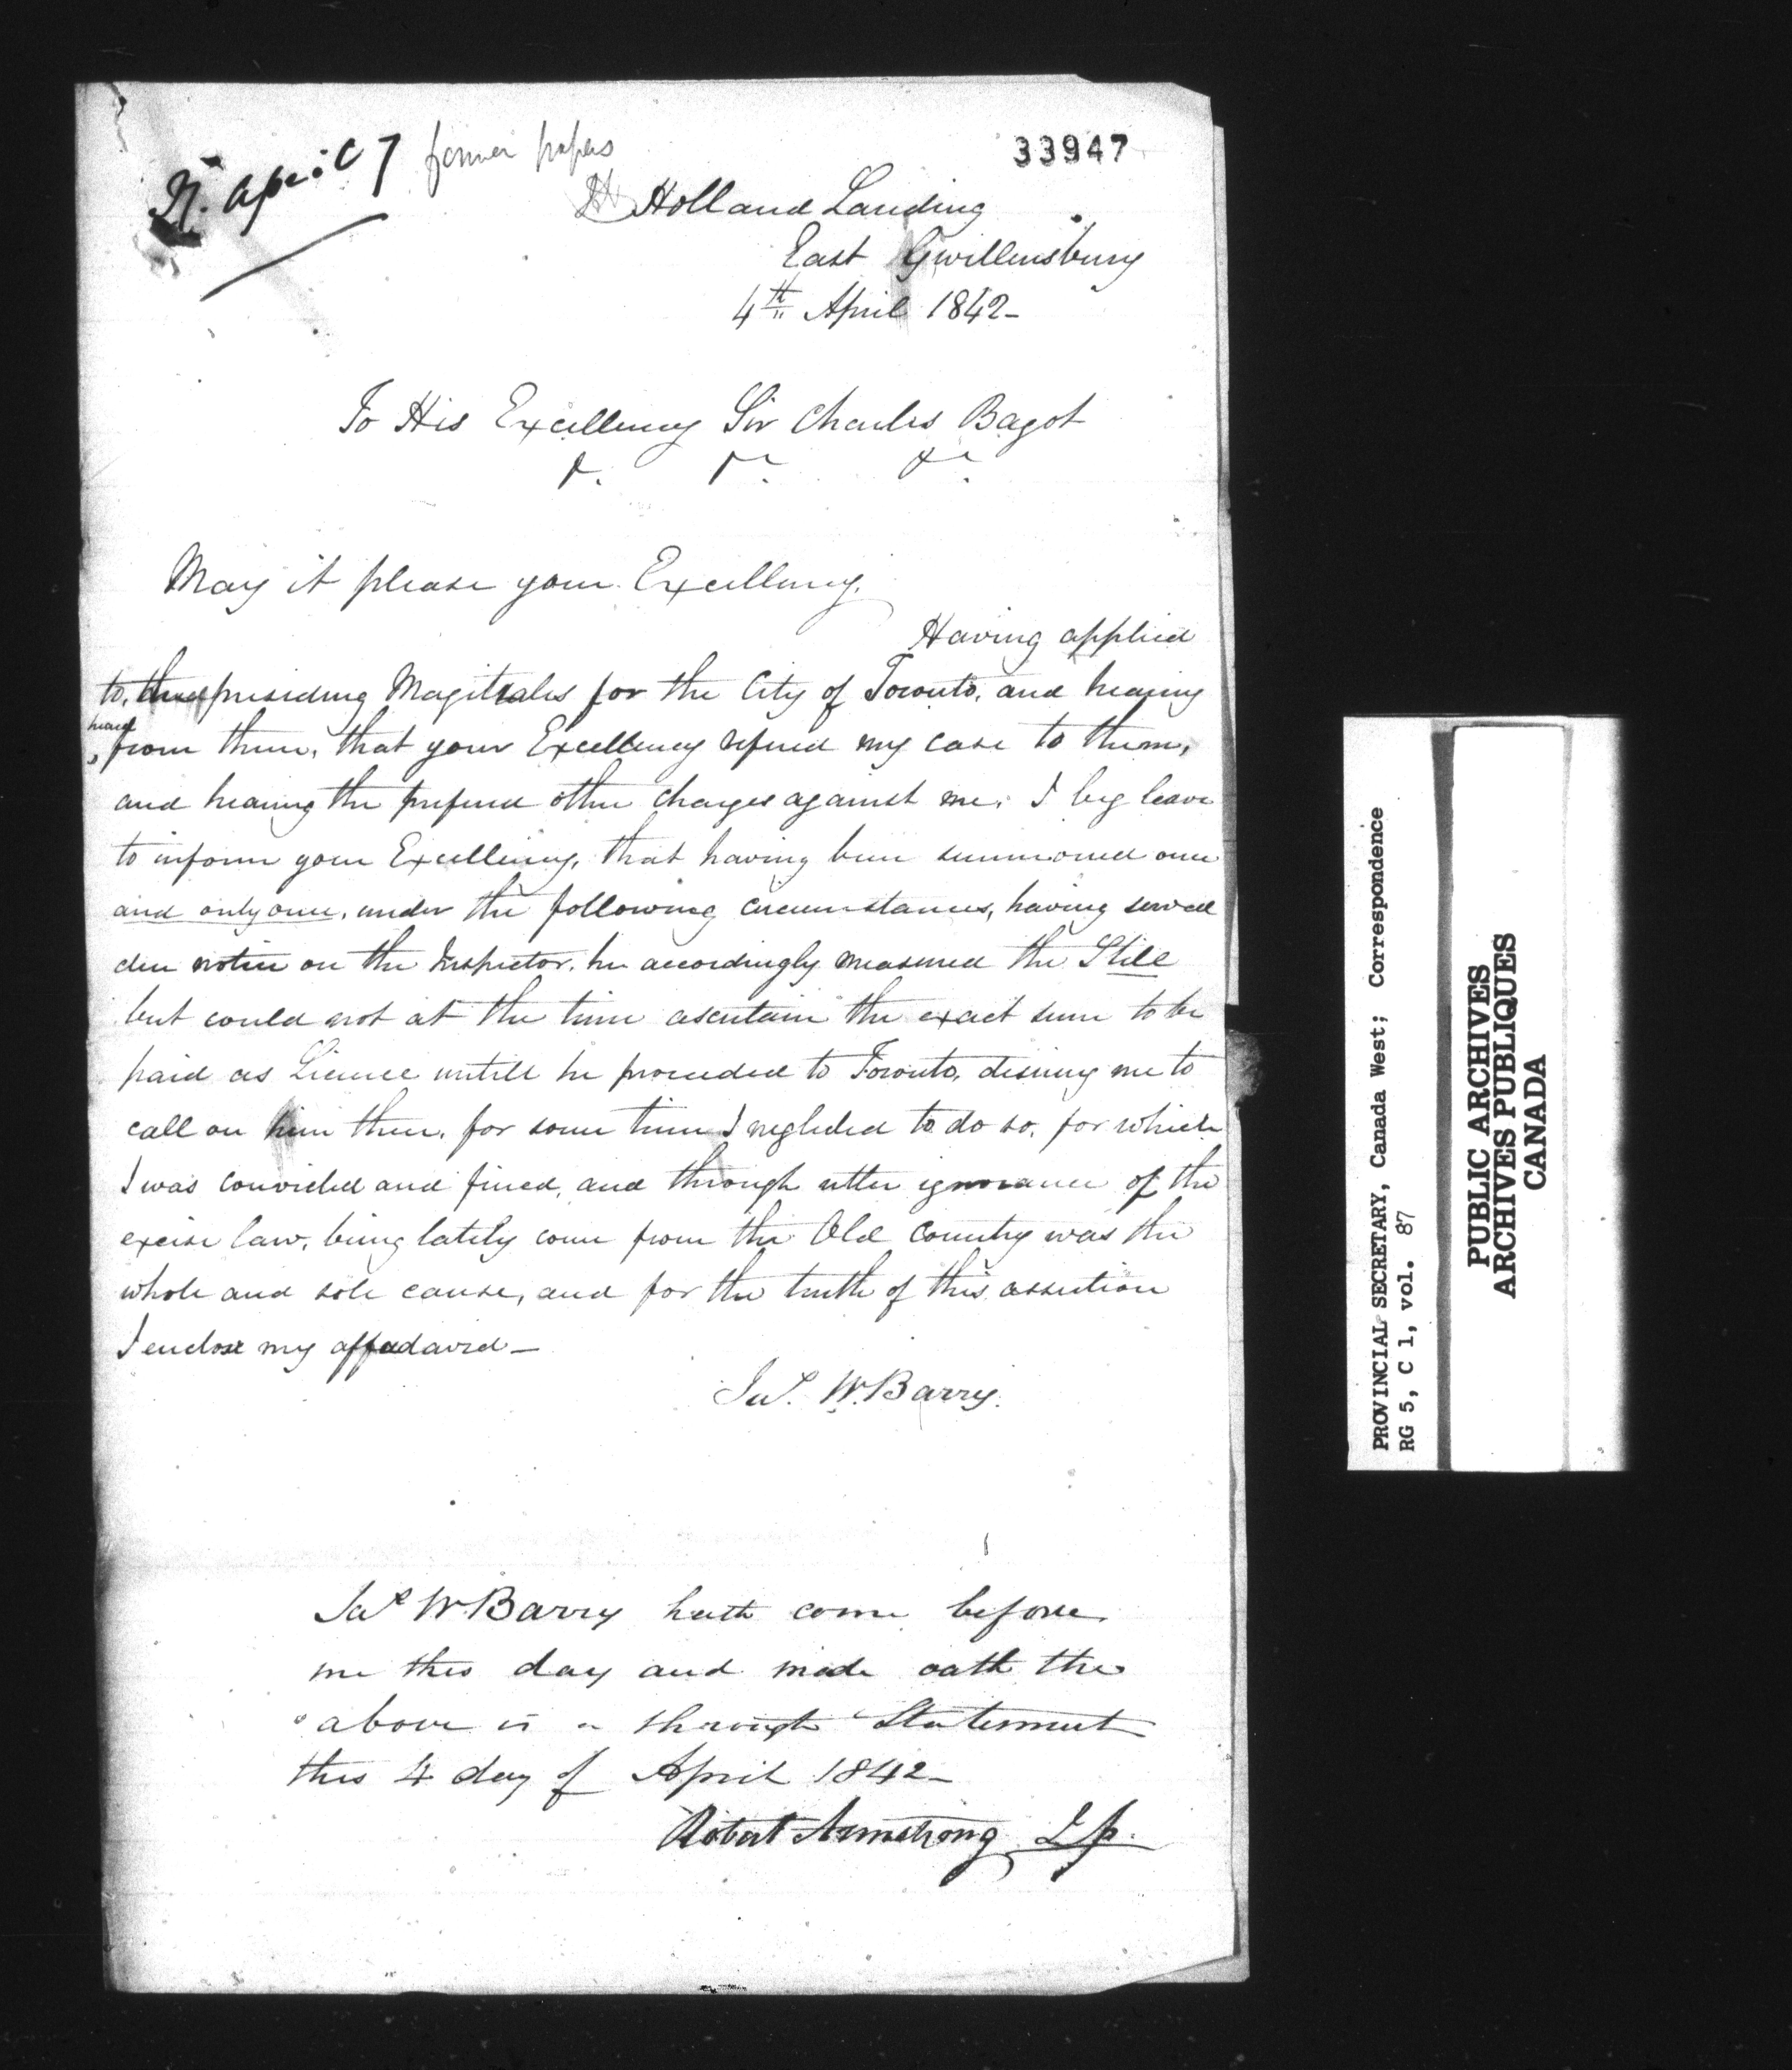 April 7 former papers
33947
Holland Landing
East Gwillensbury
4th April 1842-
To His Excellency Sir Charles Bagot
&. &c. &c.
May it please your Excellency.
Having applied
to, presiding Magitrales for the City of Toronto, and hearing
heard
from them, that your Excellency refered my case to them,
and hearing the prefered other charges against me. I beg leave
to inform your Excellency, that having been summoned once
and only once, under the following circumstances, having served
due notice on the Inspector. he accordingly measured the Still
but could not at the time ascertain the exact sum to be
paid as Licence untill he proceeded to Toronto, desiring me to
call on him there. for some time I neglected to do so, for which
I was convicted and fined, and through utter ignorance of the
excise law, being lately come from the Old Country was the
whole and sole cause, and for the truth of this assertion
I enclose my affadavid-
Jas. W. Barry.
Jas W. Barry hath come before
me this day and made oath the
above is a through Statement
this 4 day of April 1842-
Robert Armstrong J.p.
PROVINCIAL SECRETARY, Canada West; Correspondence
RG 5, C 1, vol. 87
PUBLIC ARCHIVES
ARCHIVES PUBLIQUES
CANADA